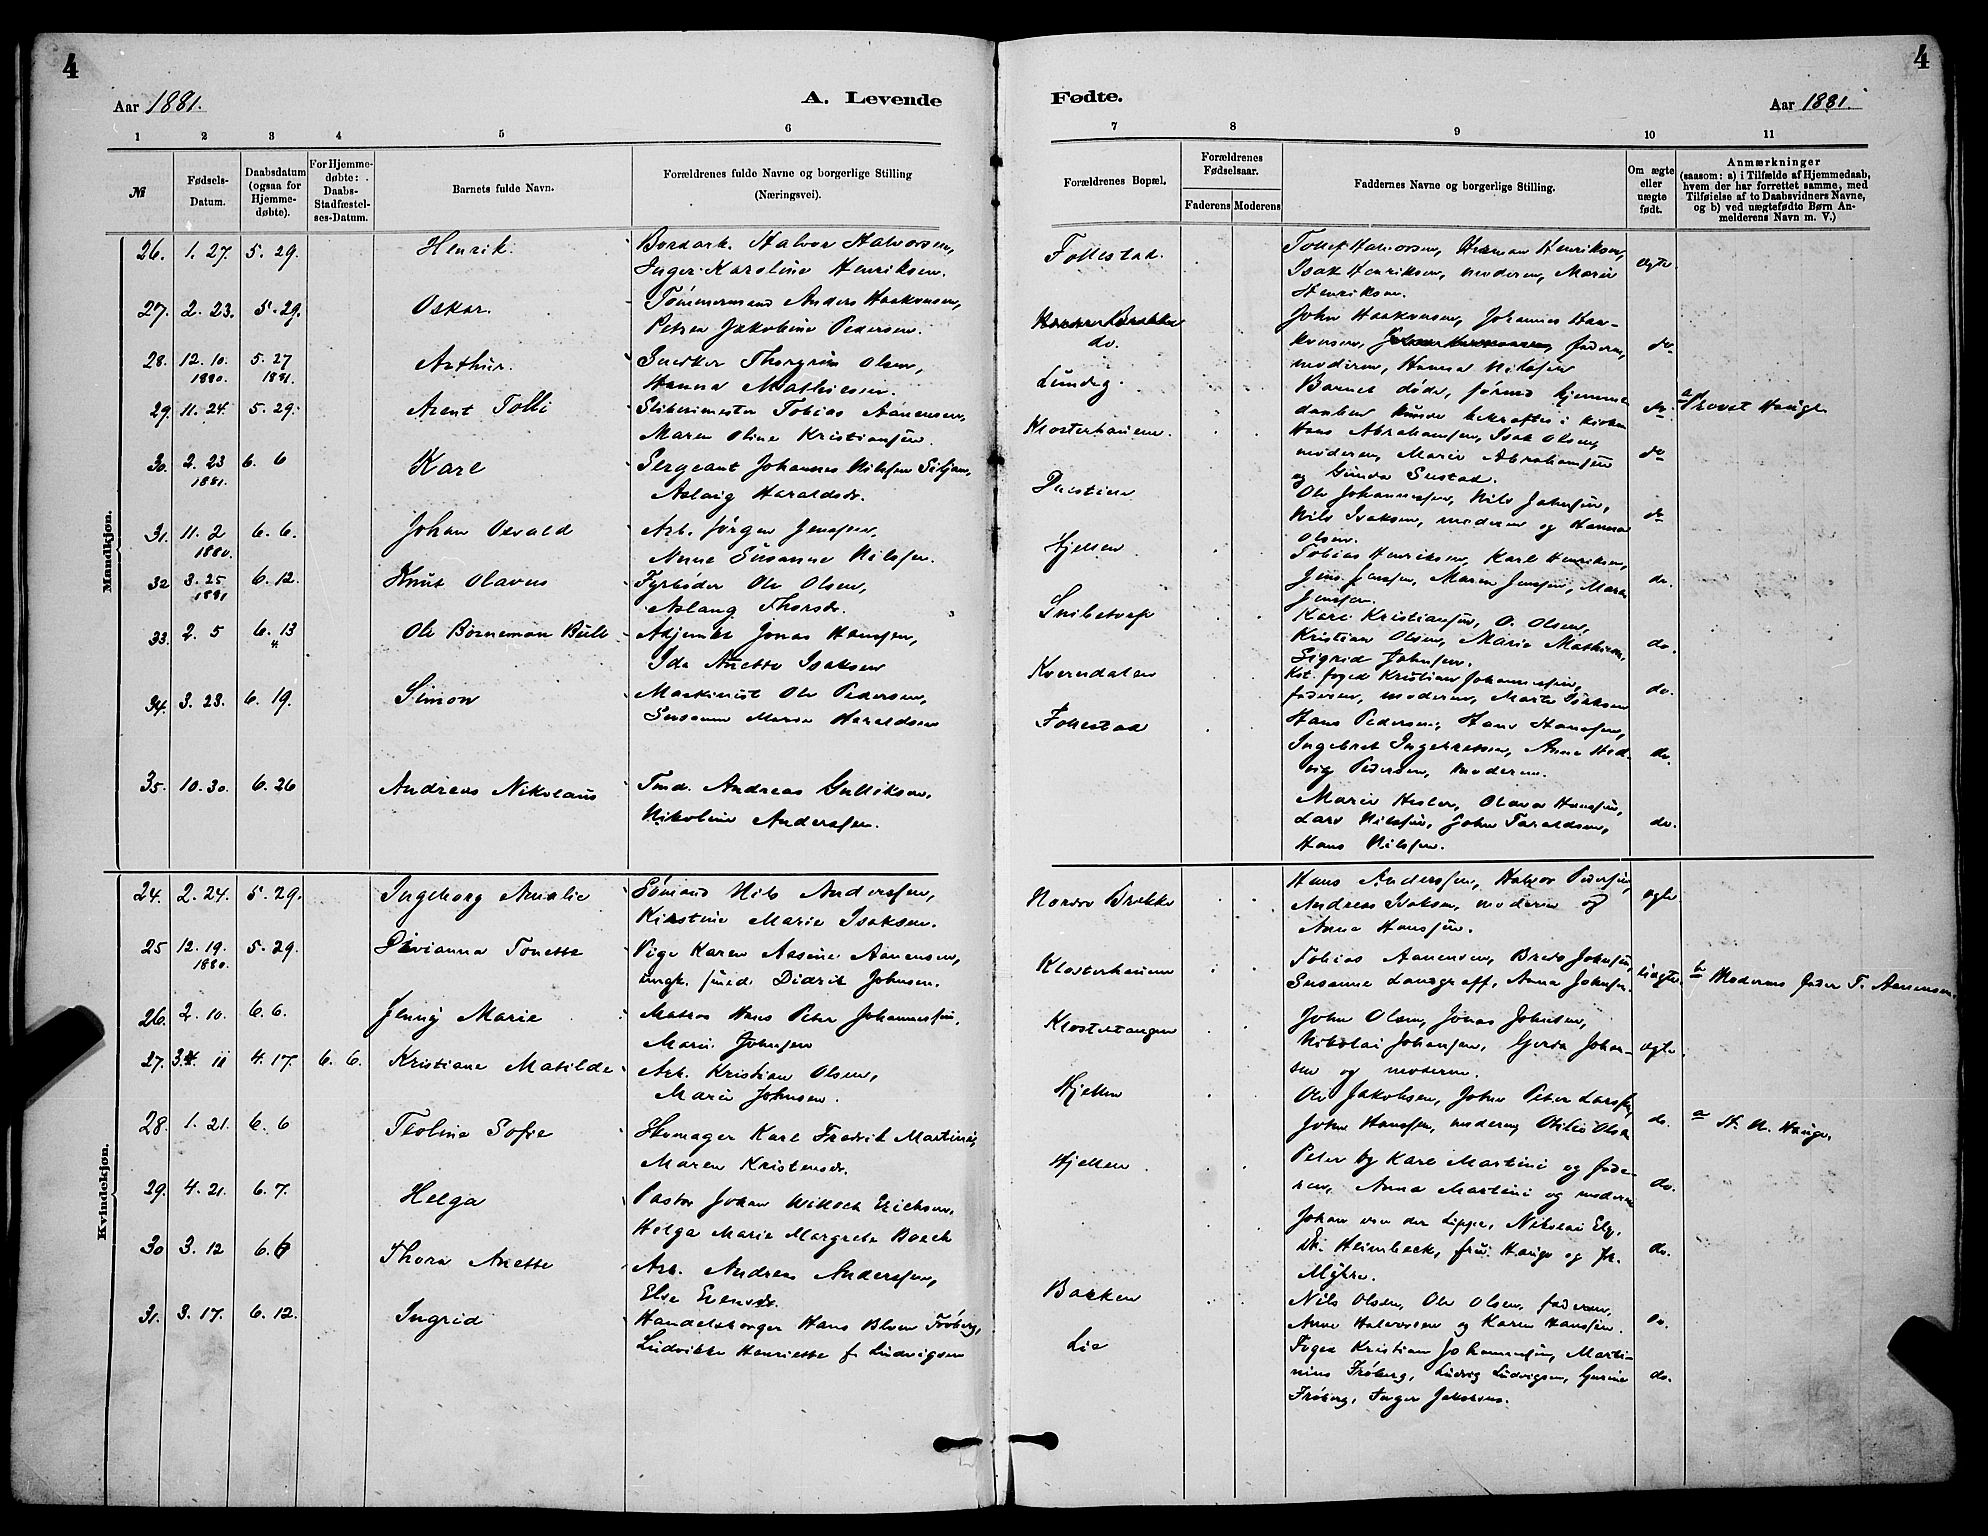 4
Aar 1881.
A. Levende
1 2 3 4 5 6
№
Fødsels-
Datum.
Daabsdatum
(ogsaa for
Hjemme-
døbte).
For Hjemme-
døbte:
Daabs-
Stadfæstel-
ses-Datum.
Barnets fulde Navn.
Forældrenes fulde Navne og borgerlige Stilling
(Næringsvei).
Mandkjøn.
26. 1. 27. 5. 29. Henrik. Halvor Halvorsen,
Inger Karoline Henriksen.
27. 2. 23. 5. 29. Oskar. Tømmermand Anders Haakensen,
Petra Jakobine Pedersen.
28. 12. 10. 5. 27 Arthur. Snedker Thorgrim Olsen,
1880. 1881. Hanna Mathiesen
29. 11. 24. 5. 29. Arent Tolli Tobias Aanensen,
Maren Oline Kristiansen.
30. 2. 23 6. 6 Karl Sergeant Johannes Nilssen
1881. Aslaug Haraldsdr.
31. 11. 2 6. 6. Johan Osvald Arb. Jørgen Jenssen,
1880. Anne Susanne Nilssen.
32 3. 25 6. 12. Knut Olavus Fyrbøder Ole Olsen,
1881 Aslaug Thorsdr.
33. 2. 5 6. 13 Ole Borneman Bull Jonas Hanssen,
Ida Anette Isaksen
34. 3. 23. 6. 19. Simon Maskinist Ole Pedersen,
Susanne Maria Haraldsen
35. 10. 30. 6. 26 Andreas Nikolaus Tmd. Andreas Gulliksen,
Nikoline Anderssen.
Kvindekjøn.
24. 2. 24. 5. 29. Ingeborg Amalie Sømand Nils Anderssen,
Kirstine Marie Isaksen.
25 12. 19. 5. 29. Divianna Tonette Pige Karen Aasine Aanensen,
1880. ungk. smed. Didrik Johnsen.
26. 2. 10. 6. 6. Jenny Marie Matros Hans Peter Johannessen,
Marie Johnsen
27. 3. 11 4. 17. 6. 6. Kristiane Matilde Arb. Kristian Olsen,
Marie Johnsen.
28. 1. 21. 6. 6 Teoline Sofie Skomager Karl Fredrik Martini,
Maren Kristensdr.
29. 4. 21. 6. 7. Helga Pastor Johan Willoch Erichsen,
Helga Marie Margrete Bosch
30 3. 12 6. 6 Thora Anette Arb. Andreas Anderssen,
Else Evensdr.
31. 3. 17. 6. 12. Ingrid Handelsborger Hans Blom Frøberg,
Ludvikke Henriette f. Ludvigsen
4
Fødte.
Aar 1881.
7 8 9 10 11
Forældrenes Bopæl.
Forældrenes
Fødselsaar.
Faderens Moderens
Faddernes Navne og borgerlige Stilling.
Om ægte
eller
uægte
født.
Anmærkninger
(saasom: a) i Tilfælde af Hjemmedaab,
hvem der har forrettet samme, med
Tilføielse af to Daabsvidners Navne,
og b) ved uægtefødte Børn An-
melderens Navn m. V.)
Follestad. Tollef Halvorsen, Herman Henriksen,
Isak Henriksen, moderen, Marie ægte.
Henriksen.
John Haakensen, Johannes Haa-
do. kensen, faderen, do
moderen, Hanna Nilssen
Lundeg. Barnet døde, førend hjemme
daaben kunde bekræftes i kirken do. a Provst Hauge
Klosterhauen. Hans Abrahamsen, Isak Olsen,
moderen, Marie Abrahamsen do
og Gunda
Ole Johannessen, Nils Johnsen,
Nils Isaksen, moderen og Hanna do
Olsen.
Hjellen Tobias Henriksen, Karl Henriksen,
Jens Jenssen, Maren Jenssen, Maria do.
Jenssen.
Karl Kristiansen, O. Olsen,
Kristian Olsen, Marie Mathisen, do.
Sigrid Johnsen.
Kverndalen Kst. foged Kristian Johannessen,
faderen, moderen, Marte Isaksen do.
Follestad Hans Pedersen, Hans Hanssen,
Ingebret Ingebretsen, Anna Hed- do.
vig Pedersen, moderen.
Marie Hesler, Olava Hanssen,
Lars Nilssen, John Taraldsen, do.
Hans Nilssen.
Nordre Brekke Hans Anderssen, Halvor Pedersen,
Andreas Isaksen, moderen og ægte
Anna Hanssen.
Klosterhauen Tobias Aanensen, Brede Johnsen,
Susanne Landgraff, Anna Johnsen. uægte. b Moderens fader T. Aanensen.
Klostertangen John Olsen, Jonas Johnsen,
Nikolai Johansen, Gerda Johan- ægte.
sen og moderen.
Hjellen Ole Jakobsen, John Peter Larssen,
John Hanssen, moderen, Otilie Olsen do. a St. N. Hauge.
Hjellen Peter og Karl Martini og fade-
ren, Anna Martini og moderen do.
Johan von der Lippe, Nikolai Ely,
Dr. Heimbeck, fru Hauge og fr. do.
Myhre.
Bakken Nils Olsen, Ole Olsen, faderen,
Anne Halvorsen og Karen Hanssen. do.
Lie Foged Kristian Johannessen, Marti-
nius Frøberg, Ludvig Ludvigsen, Gurine do.
Frøberg, Inger Jakobsen.